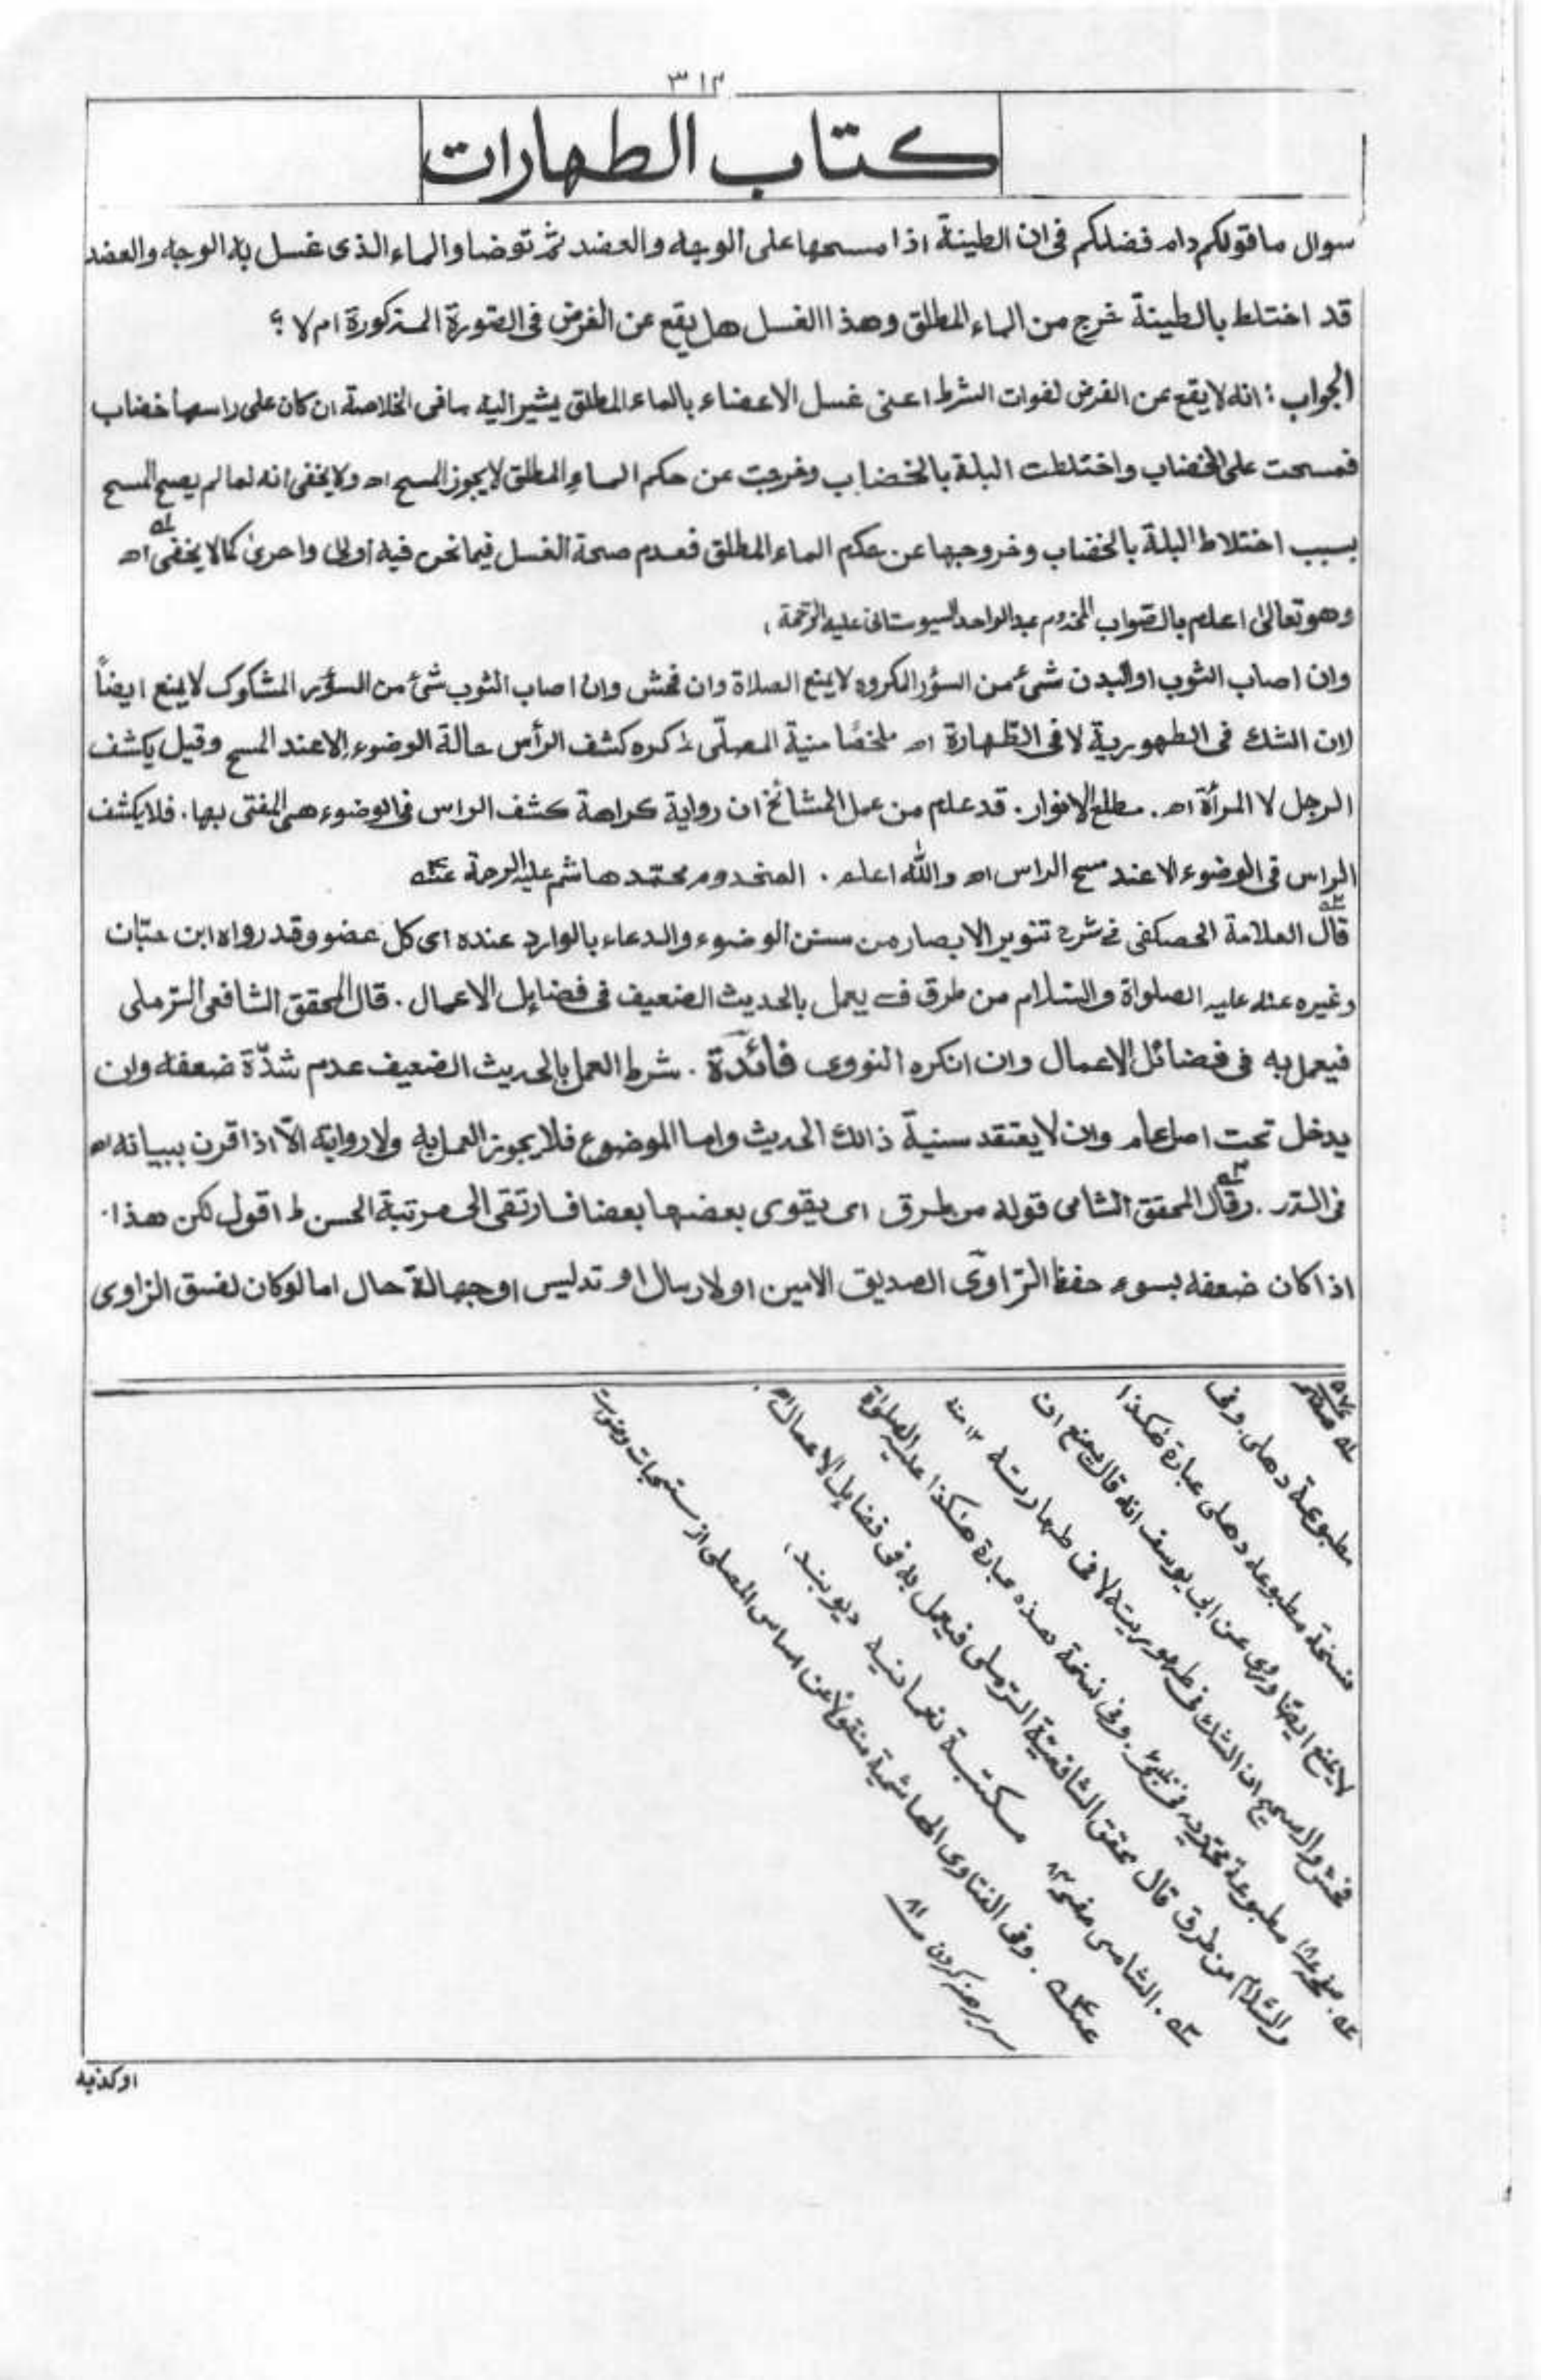 ٣١٢
كتاب الطهارات
سوال ما قولكم دام فضلكم فى ان الطينة اذا مسحها على الوجه والعضد ثم توضا والماء الذى غسل به الوجه والعضد
قد اختلط بالطينة خرج من الماء المطلق وهذا الغسل هل يقع عن الفرض فى الصورة المذكورة ام لا ؟
الجواب : انه لا يقع عن الفرض لفوات الشرط اعنى غسل الاعضاء بالماء المطلق يشير اليه ما فى الخلاصة ان كان على راسها خضاب
فمسحت على الخضاب واختلطت البلة بالخضاب وخرجت عن حكم الماء المطلق لا يجوز المسح اه ولا يخفى انه لما لم يصح المسح
بسبب اختلاط البلة بالخضاب وخروجها عن حكم الماء المطلق فعدم صحة الغسل فيما نحن فيه اولى واحرى كما لا يخفى اه
وهو تعالى اعلم بالصواب المخدوم عبد الواحد السيوستانى عليه الرحمة ،
وان اصاب الثوب او البدن شئ من السؤر المكروه لا يمنع الصلاة وان فحش وان اصاب الثوب شئ من السؤر المشكوك لا يمنع ايضاً
لان الشك فى الطهورية لا فى الطهارة اه ملخصًا منية المصلّى ط كره كشف الرأس حالة الوضوء الا عند المسح وقيل يكشف
الرجل لا المرأة اه . مطلع الانوار . قد علم من عمل المشائخ ان رواية كراهة كشف الراس فى الوضوء هى المفتى بها . فلا يكشف
الراس فى الوضوء الا عند مسح الراس اه والله اعلم . المخدوم محمّد هاشم عليه الرحمة عنه
قال العلامة الحصكفى فى شرح تنوير الابصار من سنن الوضوء والدعاء بالوارد عنده اى كل عضو وقد رواه ابن حبّان
وغيره عنه عليه الصلواة والسّلام من طرق ف يعمل بالحديث الضعيف فى فضايل الاعمال . قال المحقق الشافعى الترملى
فيعمل به فى فضائل الاعمال وان انكره النووى فائدة . شرط العمل بالحديث الضعيف عدم شدّة ضعفه وان
يدخل تحت اصل عام وان لا يعتقد سنية ذالك الحديث واما الموضوع فلا يجوز العمل به ولا روايته الّا اذا قرن ببيانه اه
فى الدّر . وقال المحقق الشامى قوله من طرق اى يقوى بعضها بعضا فارتقى الى مرتبة الحسن ط اقول لكن هذا .
اذا كان ضعفه بسوء حفظ الرّاوى الصديق الامين او لارسال او تدليس او جهالة حال اما لو كان لفسق الراوى
مطبوعة دهلى . وفى
نسخة مطبوعه دهلى عبارة هٰكذا
لا يمنع ايضًا وروى عن ابى يوسف انه قال يمنع ان
فحش والصحيح ان الشك فى طهوريته لا فى طهارته ١٢ منه
مطبوعة محمّديه . وفى نسخة هذه عبارة هٰكذا عليه الصلواة
والسّلام من طرق قال محقق الشافعيّة الترملى فيعمل به فى فضايل الاعمال اه .
الشامى صفحه ٨٣ مكتبة نعمانيه ديوبند ،
وفى الفتاوى الهاشمية منقولاً عن اساس المصلى از مستحبات وضوءت
سر برهنه كردن ص ٨١
او كذبه